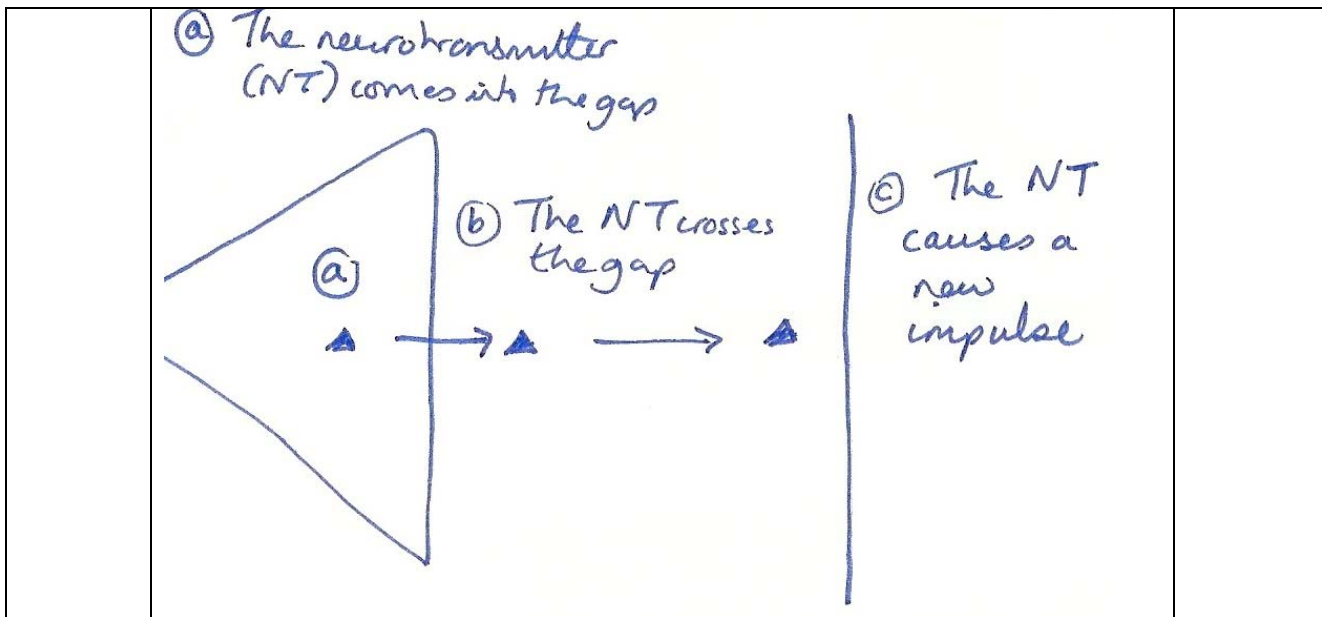 ⓐ The neurotransmitter
(NT) comes into the gap
ⓑ The NT crosses
the gap
ⓐ
ⓒ The NT
causes a
new
impulse